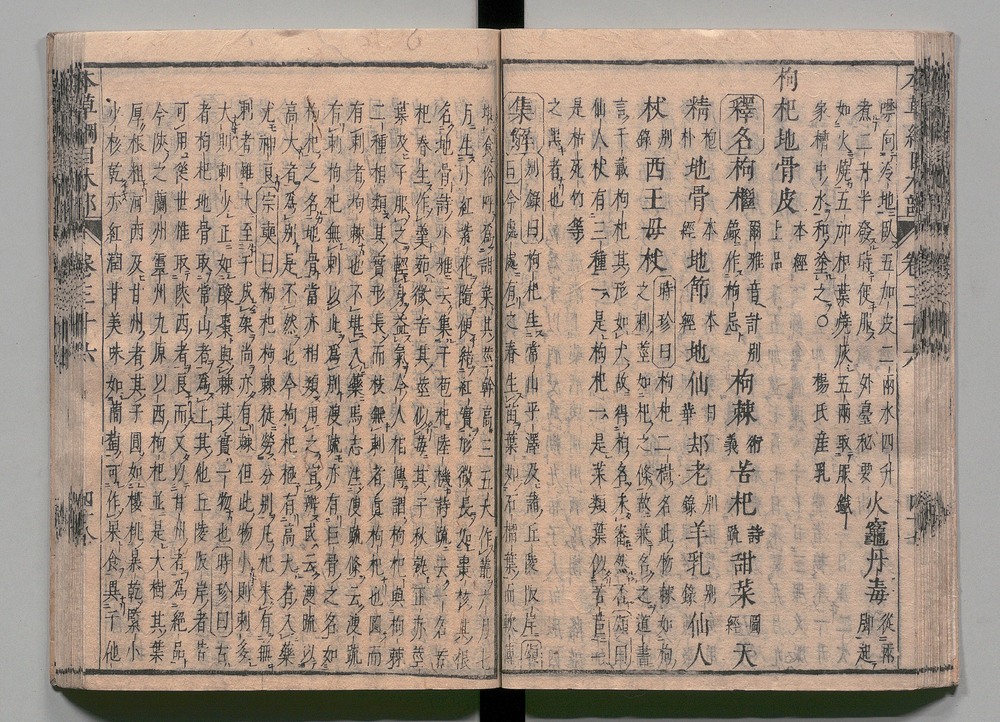 嚀向冷地臥五加皮二兩水四升
煮二升半發時便服外臺秘要火竈丹毒從兩脚起
如火燒五加根葉燒灰五兩取煅鐵
家槽中水和塗之楊氏產乳
枸杞地骨皮本經上品
釋名枸檵爾雅音計別錄作枸忌枸棘衍義苦杞詩疏甜菜圖經天
精抱朴地骨本經地節本經地仙日華却老別錄羊乳別錄仙人
杖別錄西王母杖時珍曰枸杞二樹名此物棘如枸
之刺莖如杞之條故兼名之道書
言千載枸杞其形如犬故得枸名未審然否頌曰
仙人杖有三種一是枸杞一是菜類葉似苦苣一
是枯竹竿
之黑者也
集解別錄曰枸杞生常山平澤及諸丘陵阪岸頌
曰今處處有之春生苗葉如石榴葉而軟薄
堪食俗呼為甜菜其莖幹高三五尺作叢六月七
月生小紅紫花隨便結紅實形微長如棗核其根
名地骨詩小雅云集于苞杞陸機詩疏云一名苦
杞春生作羹茹微苦其莖似莓其子秋熟正赤莖
葉及子服之輕身益氣今人相傳謂枸杞與枸棘
二種相類其實形長而枝無刺者真枸杞也圓而
有刺者枸棘也不堪入藥馬志注溲疏條云溲疏
有刺枸杞無刺以此為別溲疏亦有巨骨之名如
枸杞之名地骨當亦相類用之宜辨或云溲疏以
高大者為別是不然也今枸杞極有高大者入藥
尤神良宗奭曰枸杞枸棘徒勞分別凡杞未有無
刺者雖大至于成架尚亦有棘但此物小則刺多
大則刺少正如酸棗與棘其實一物也時珍曰古
者枸杞地骨取常山者為上其他丘陵阪岸者皆
可用後世惟取陝西者良而又以甘州者為絕品
今陝之蘭州靈州九原以西枸杞並是大樹其葉
厚根粗河西及甘州者其子圓如櫻桃暴乾緊小
少核乾亦紅潤甘美味如葡萄可作果食異于他